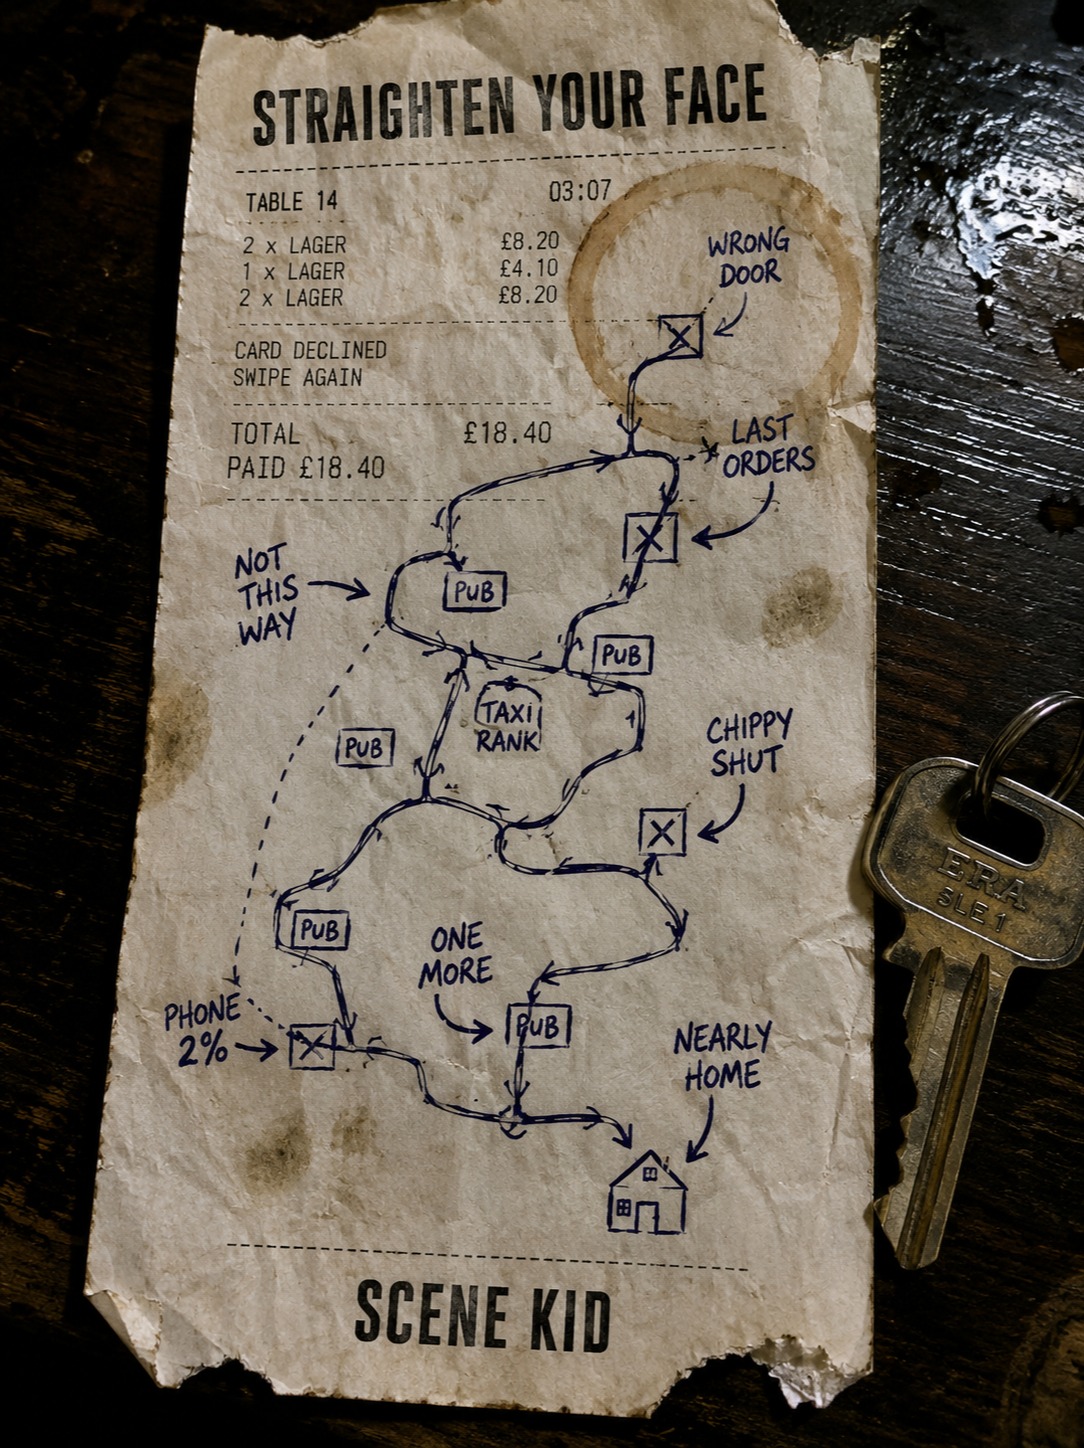 STRAIGHTEN YOUR FACE
TABLE 14 03:07
2 x LAGER £8.20
1 x LAGER £4.10
2 x LAGER £8.20
CARD DECLINED
SWIPE AGAIN
TOTAL £18.40
PAID £18.40
WRONG
DOOR
LAST
ORDERS
NOT
THIS
WAY
PUB
PUB
TAXI
RANK
PUB
CHIPPY
SHUT
PUB
ONE
MORE
PHONE
2%
PUB
NEARLY
HOME
SCENE KID
ERA
SLE 1